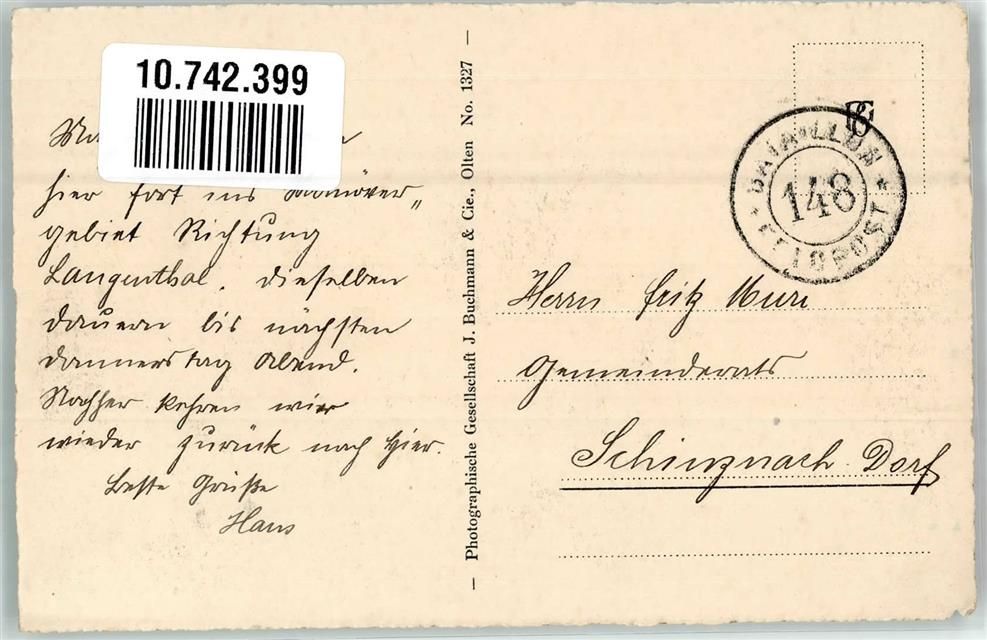 10.742.399
hier fort ins Manöver„
gebiet Richtung
Langenthal. Dieselben
dauern bis nächsten
Donnerstag Abend.
Nachher kehren wir
wieder zurück nach hier.
Beste Grüße
Hans
— Photographische Gesellschaft J. Buchmann & Cie., Olten No. 1327 —
BATAILLON
148
* FELDPOST *
Herrn Fritz Muri
Gemeinderats
Schinznach-Dorf